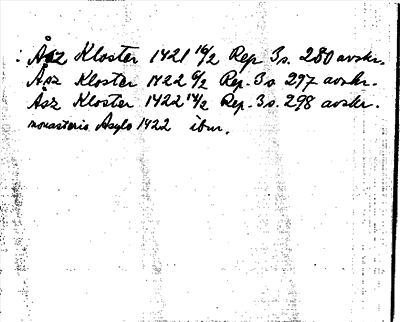 : Åsz Kloster 1421 16/2 Rep 3 s. 280 avskr.
Åsz Kloster 1422 6/2 Rep. 3 s 297 avskr.
Åsz Kloster 1422 14/2 Rep. 3 s. 298 avskr.
monasterio Asylo 1422 ibm.